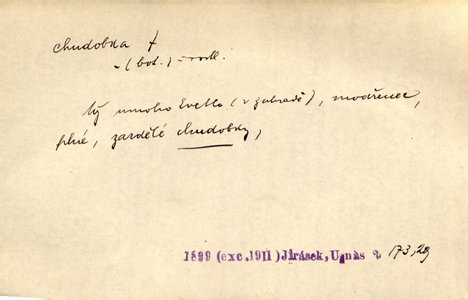 chudobka f
- (bot.) -
tý mnoho kvetlo (v zahradě), modřenec,
plné, zardělé chudobky,
1899 (exc. 1911) Jirásek, U nás 2 173, 29